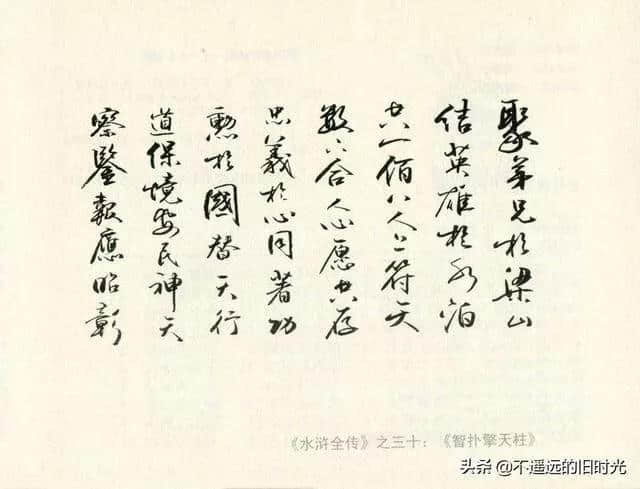 聚弟兄於梁山
结英雄於水泊
共一佰八人上符天
數下合人心愿共存
忠義於心同著功
勲於國替天行
道保境安民神天
察鑒報應昭彰
《水浒全传》之三十：《智扑擎天柱》
头条 @不遥远的旧时光